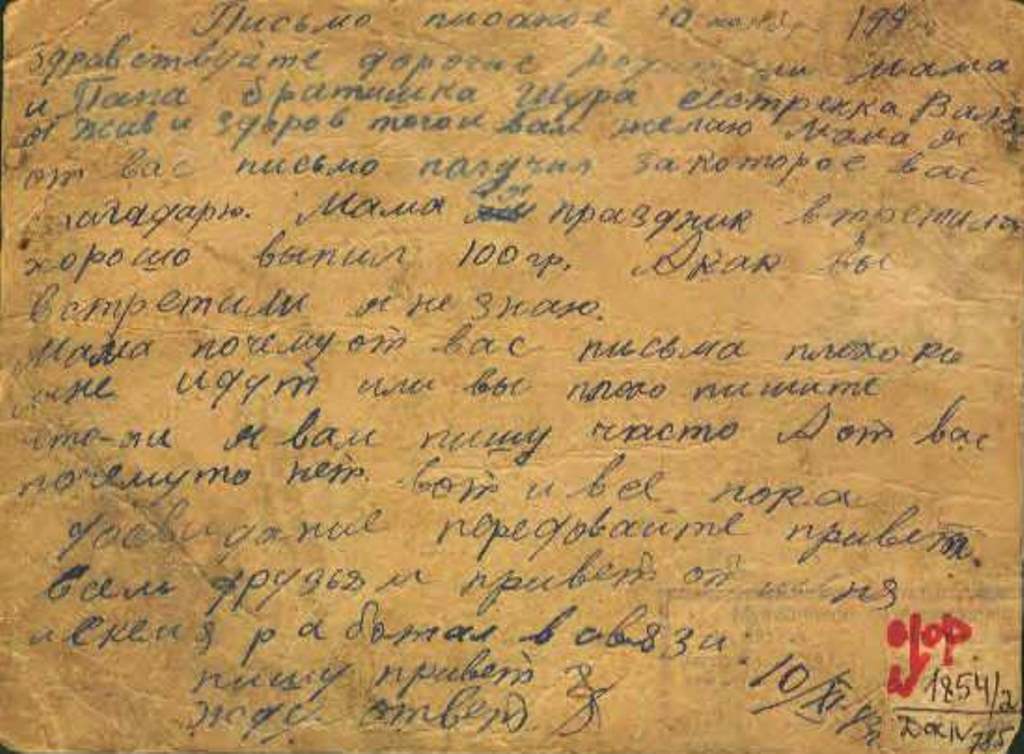 Письмо писаное 10 ноября 194
Здравствуйте дорогие родители мама
и Папа братишка Шура сестренка Валя
я жив и здоров того и вам желаю Мама я
от вас письмо получил за которое вас
благадарю. Мама я праздник встретил
хорошо выпил 100 гр. А как вы
встретили я не знаю.
Мама почему от вас письма плохо ко
мне идут или вы плохо пишите
что-ли я вам пишу часто А от вас
почемуто нет. вот и все пока
досвидание передовайте привет.
всем друзьям привет от меня
работал в связи
пишу привет
жду ответ.
10/XI 43
офор
1854/2